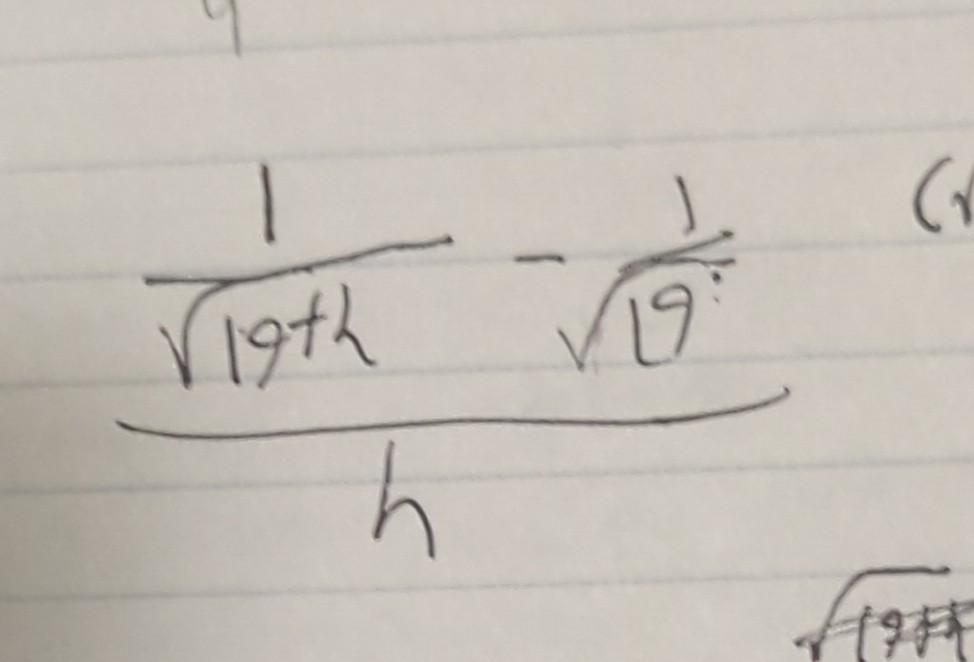 1/√(19+h) - 1/√19
h